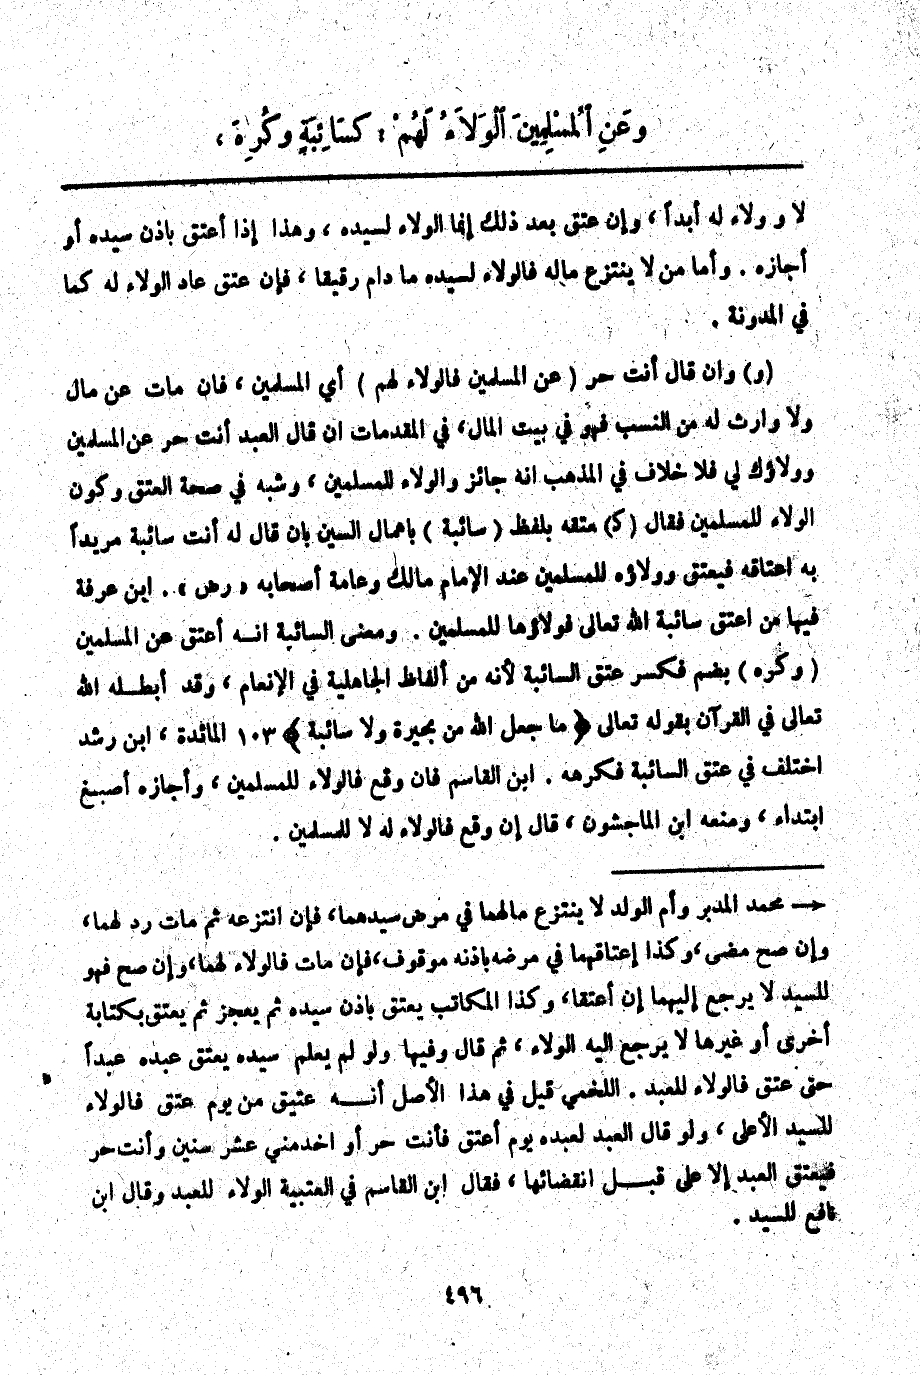 وَعَنِ ٱلْمسْلِمِينَ ٱلْوَلاَءُ لَهُمْ : كسَائِبَةٍ وكُرِهَ ،
لا و ولاء له أبداً ، وإن عتق بعد ذلك إنما الولاء لسيده ، وهذا إذا أعتق باذن سيده أو
أجازه . وأما من لا ينتزع ماله فالولاء لسيده ما دام رقيقا ، فإن عتق عاد الولاء له كما
في المدونة .
(و) وان قال أنت حر ( عن المسلمين فالولاء لهم ) أي المسلمين ، فان مات عن مال
ولا وارث له من النسب فهو في بيت المال، في المقدمات ان قال العبد أنت حر عن المسلمين
وولاؤك لي فلا خلاف في المذهب انه جائز والولاء للمسلمين ، وشبه في صحة العتق وكون
الولاء للمسلمين فقال (ك) عتقه بلفظ ( سائبة ) باهمال السين بان قال له أنت سائبة مريداً
به اعتاقه فيعتق وولاؤه للمسلمين عند الإمام مالك وعامة أصحابه « رض » . ابن عرفة
فيها من اعتق سائبة الله تعالى فولاؤها للمسلمين . ومعنى السائبة انـه أعتق عن المسلمين
( وكره ) بضم فكسر عتق السائبة لأنه من ألفاظ الجاهلية في الإنعام ، وقد أبطـله الله
تعالى في القرآن بقوله تعالى ﴿ ما جعل الله من بحيرة ولا سائبة ﴾ ١٠٣ المائدة ، ابن رشد
اختلف في عتق السائبة فكرهه . ابن القاسم فان وقع فالولاء للمسلمين ، وأجازه أصبـغ
ابتداء ، ومنعه ابن الماجشون ، قال إن وقع فالولاء له لا للمسلمين .
محمد المدبر وأم الولد لا ينتزع مالهما في مرض سيدهما، فإن انتزعه ثم مات رد لهما،
وإن صح مضى،وكذا إعتاقهما في مرضه باذنه موقوف،فإن مات فالولاء لهما،وإن صح فهو
للسيد لا يرجع إليهما إن أعتقا، وكذا المكاتب يعتق باذن سيده ثم يعجز ثم يعتق بكتابة
أخرى أو غيرها لا يرجع اليه الولاء ، ثم قال وفيها ولو لم يعلم سيده يعتق عبده عبداً
حتى عتق فالولاء للعبد . اللخمي قيل في هذا الأصل أنـــه عتيق من يوم عتق فالولاء
للسيد الأعلى ، ولو قال العبد لعبده يوم أعتق فأنت حر أو اخدمني عشر سنين وأنت حر
فيعتق العبد إلا على قبــل انقضائها ، فقال ابن القاسم في العتبية الولاء للعبد وقال ابن
نافع للسيد .
٤٩٦